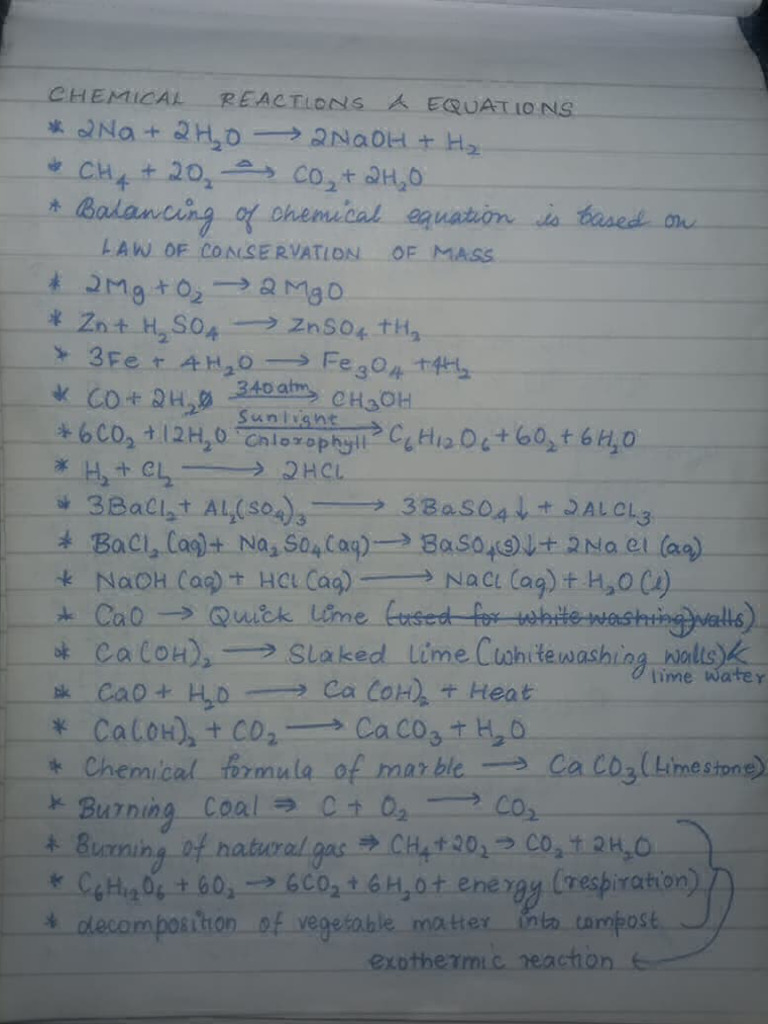 CHEMICAL REACTIONS & EQUATIONS
* 2Na + 2H₂O ⟶ 2NaOH + H₂
* CH₄ + 2O₂ —Δ→ CO₂ + 2H₂O
* Balancing of chemical equation is based on
LAW OF CONSERVATION OF MASS
* 2Mg + O₂ → 2MgO
* Zn + H₂SO₄ ⟶ ZnSO₄ + H₂
* 3Fe + 4H₂O ⟶ Fe₃O₄ + 4H₂
* CO + 2H₂ —340 atm→ CH₃OH
* 6CO₂ + 12H₂O —Sunlight / Chlorophyll→ C₆H₁₂O₆ + 6O₂ + 6H₂O
* H₂ + Cl₂ ⟶ 2HCl
* 3BaCl₂ + Al₂(SO₄)₃ ⟶ 3BaSO₄↓ + 2AlCl₃
* BaCl₂(aq) + Na₂SO₄(aq) → BaSO₄(s)↓ + 2NaCl(aq)
* NaOH(aq) + HCl(aq) ⟶ NaCl(aq) + H₂O(l)
* CaO → Quick lime (used for white washing) walls)
* Ca(OH)₂ ⟶ Slaked lime (whitewashing walls) &
lime water
* CaO + H₂O ⟶ Ca(OH)₂ + Heat
* Ca(OH)₂ + CO₂ ⟶ CaCO₃ + H₂O
* Chemical formula of marble ⟶ CaCO₃ (Limestone)
* Burning Coal ⇒ C + O₂ ⟶ CO₂
* Burning of natural gas ⇒ CH₄ + 2O₂ → CO₂ + 2H₂O
* C₆H₁₂O₆ + 6O₂ → 6CO₂ + 6H₂O + energy (respiration)
* decomposition of vegetable matter into compost
exothermic reaction ←